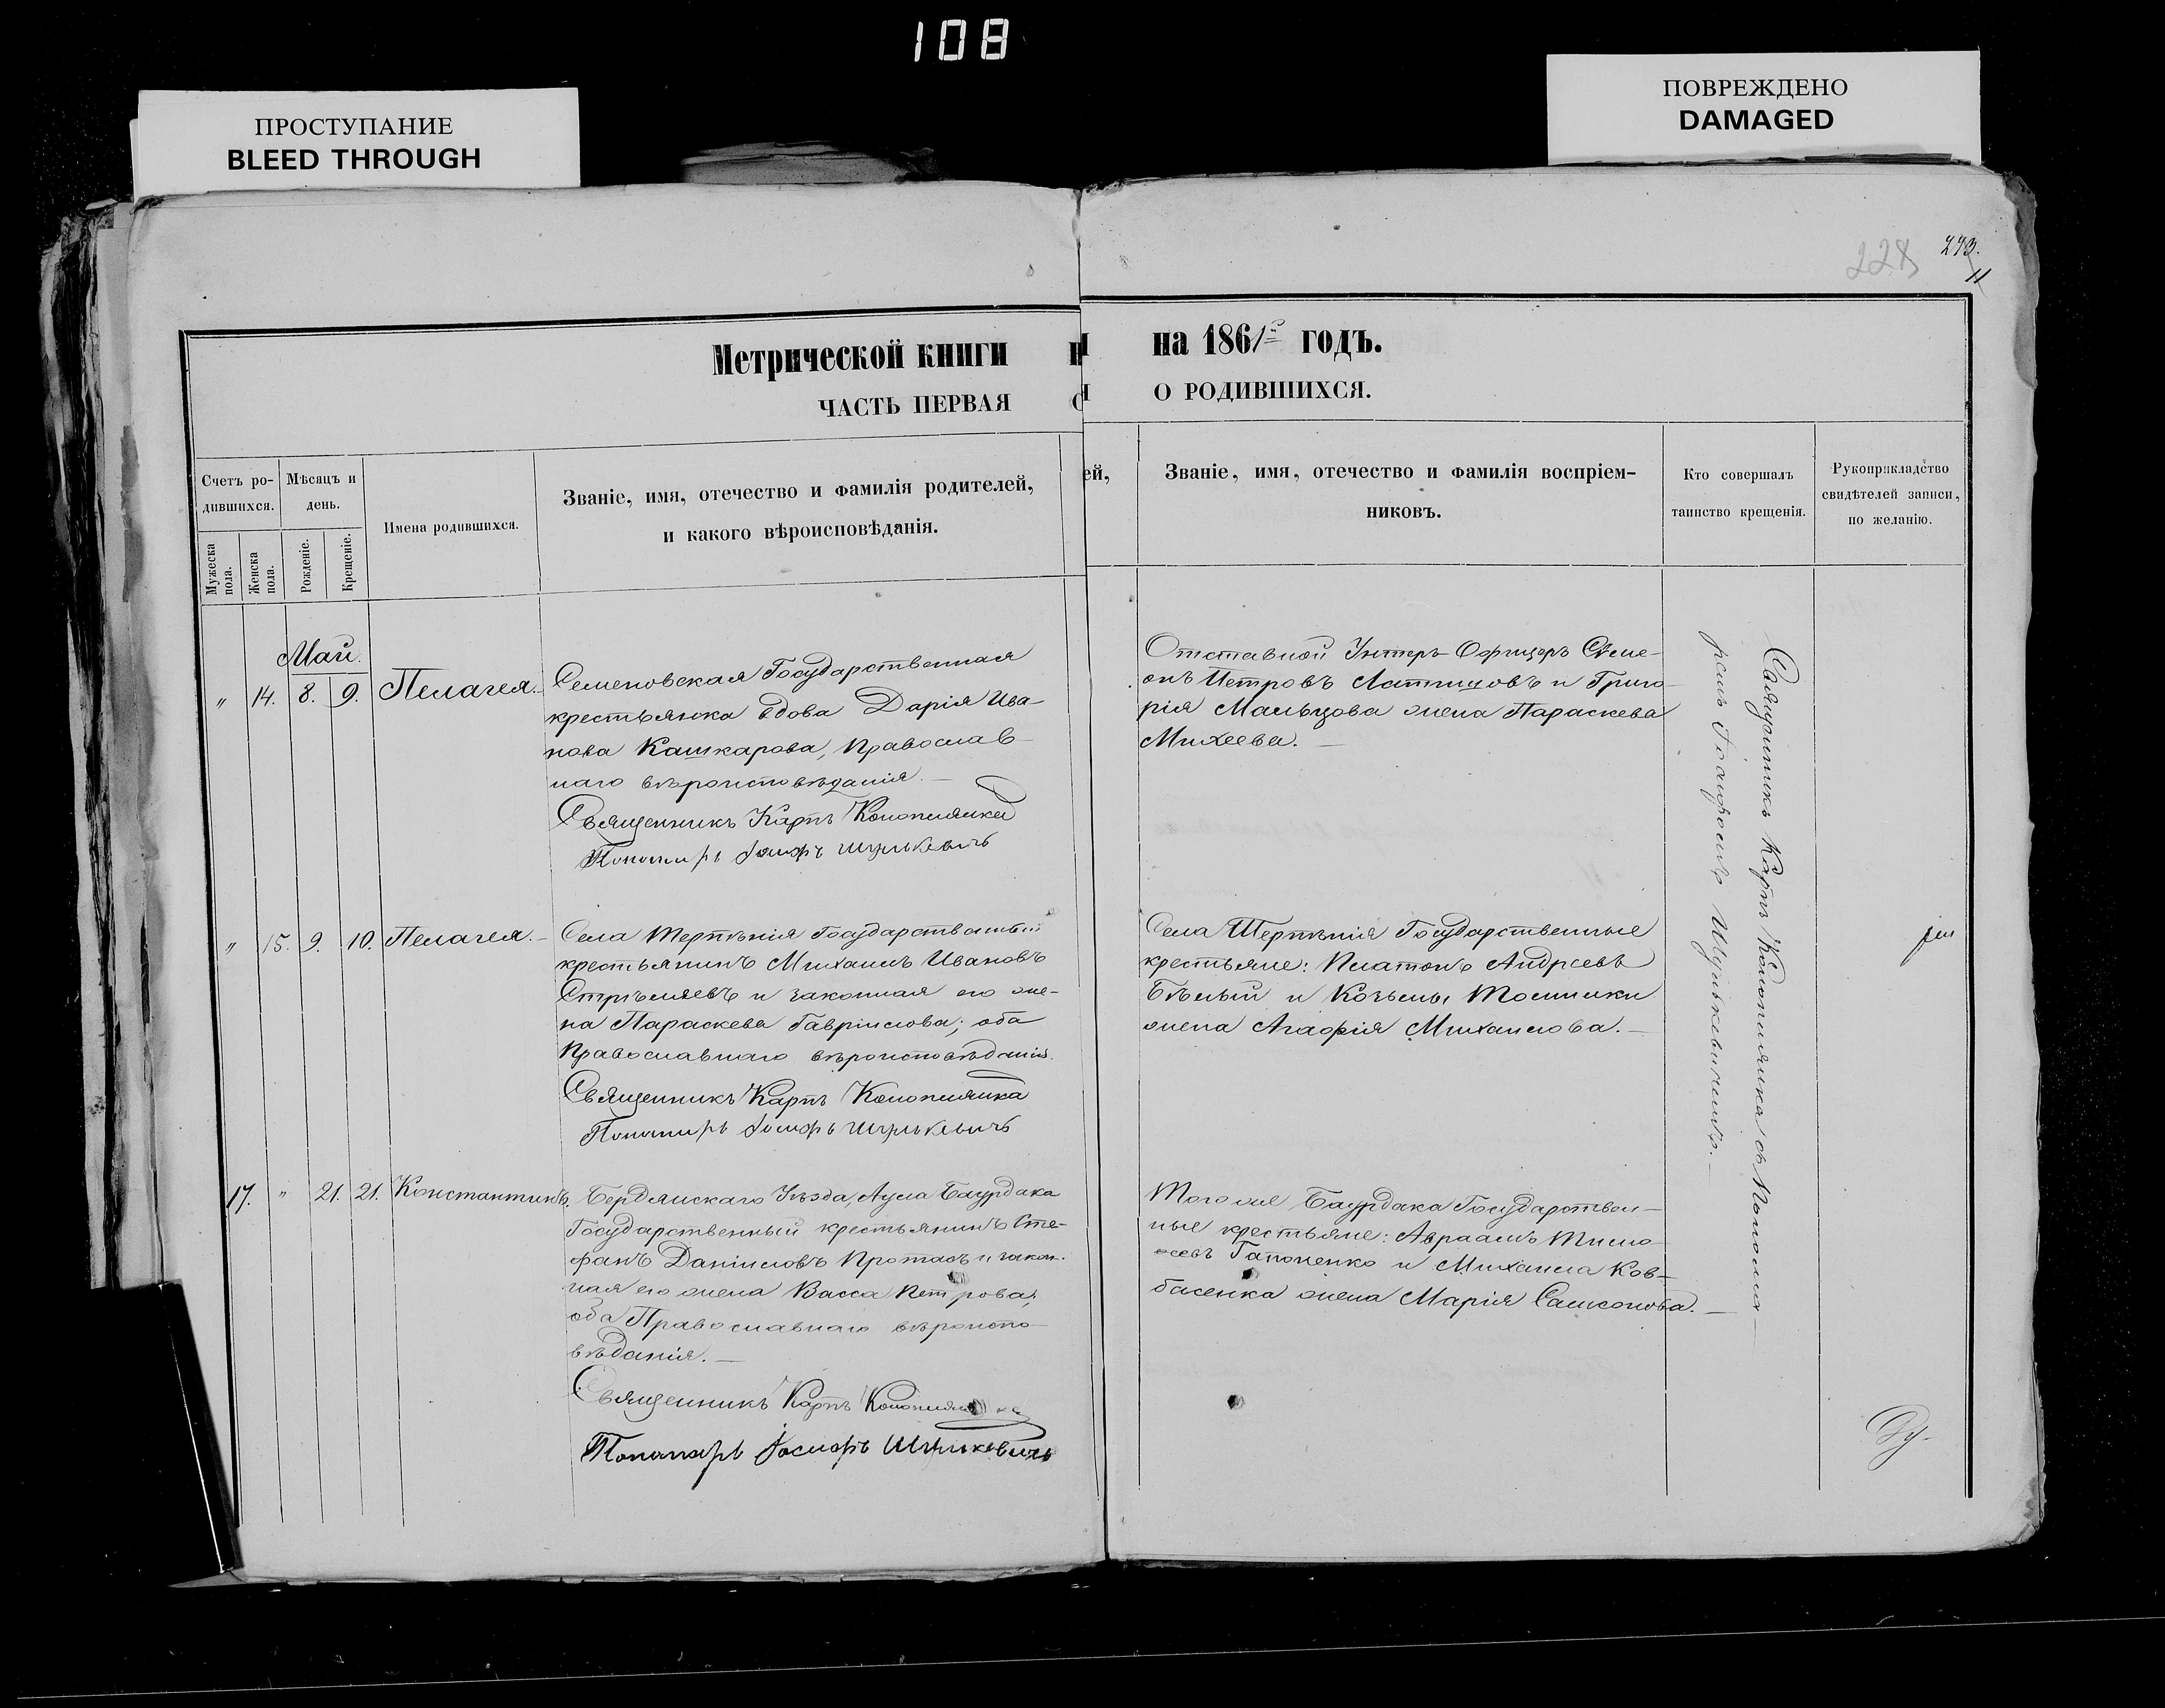 108
ПРОСТУПАНИЕ
BLEED THROUGH
ПОВРЕЖДЕНО
DAMAGED
228
273.
11
Метрической книги на 1861й годъ.
ЧАСТЬ ПЕРВАЯ О РОДИВШИХСЯ.
Счетъ ро-
дившихся.
Мужеска
пола.
Женска
пола.
Мѣсяцъ и
день.
Рожденіе.
Крещеніе.
Имена родившихся.
Званіе, имя, отечество и фамилія родителей,
и какого вѣроисповѣданія.
Званіе, имя, отечество и фамилія воспріем-
никовъ.
Кто совершалъ
таинство крещенія.
Рукоприкладство
свидѣтелей записи,
по желанію.
Май.
" 14. 8. 9. Пелагея.
Семеновская Государственная
крестьянка вдова Дарія Ива-
нова Кашкарова, Православ-
наго вѣроисповѣданія.
Священникъ Карпъ Коноплянка
Пономарь Іосифъ Шулькевичъ
Отставной Унтеръ-Офицеръ Симе-
онъ Петровъ и Григо-
рія Мальцова жена Параскева
Михеева.
" 15. 9. 10. Пелагея.
Села Терпѣнія Государственный
крестьянинъ Михаилъ Ивановъ
Стрѣляевъ и законная его же-
на Параскева Гавріилова; оба
Православнаго вѣроисповѣданія.
Священникъ Карпъ Коноплянка
Пономарь Іосифъ Шулькевичъ
Села Терпѣнія Государственные
крестьяне: Платонъ Андреевъ
Бѣлый и Козьмы
жена Агафія Михаилова.
17. " 21. 21. Константинъ.
Бердянскаго Уѣзда, Аула Баурдака
Государственный крестьянинъ Сте-
фанъ Даніиловъ Протасъ и закон-
ная его жена Васса Петрова;
оба Православнаго вѣроиспо-
вѣданія.
Священникъ Карпъ Коноплянка
Пономарь Іосифъ Шулькевичъ
Того же Баурдака Государствен-
ные крестьяне: Авраамъ Тимо-
ѳеевъ Гапоненко и Михаила Ков-
басенка жена Марія Самсонова.
Священникъ Карпъ Коноплянка съ Понома-
ремъ Іосифомъ Шулькевичемъ.